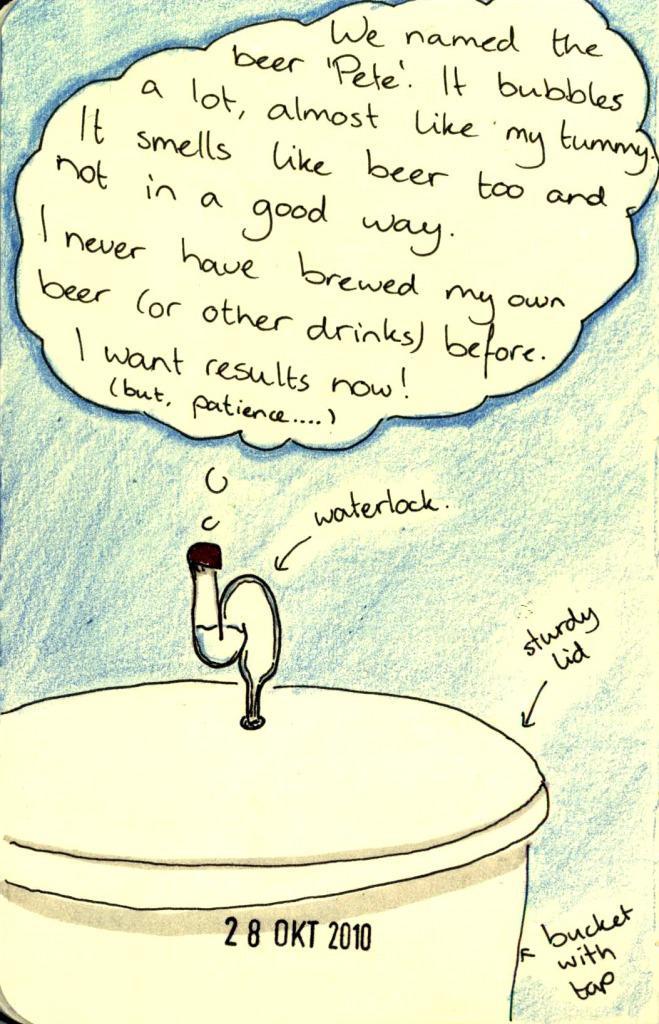 We named the
beer 'Pete'. It bubbles
a lot, almost like my tummy.
It smells like beer too and
not in a good way.
I never have brewed my own
beer (or other drinks) before.
I want results now!
(but, patience....)
waterlock.
sturdy
lid
28 OKT 2010
bucket
with
tap